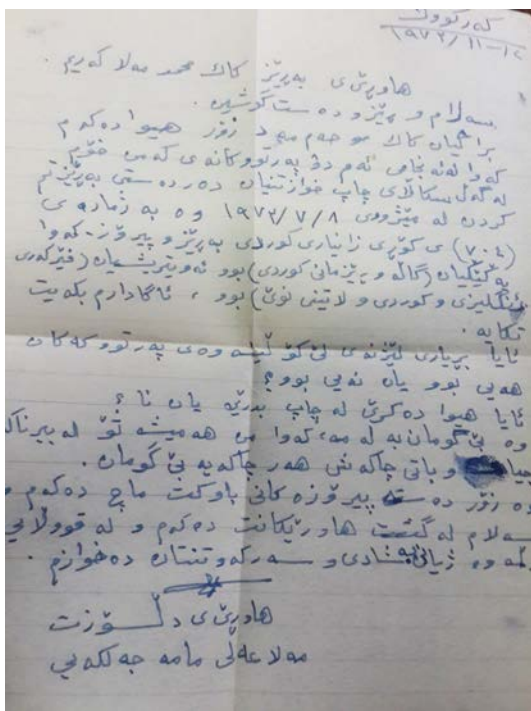 کەرکووک
١٩٧٣/١١-١٢
هاوڕێی بەڕێز کاک محمد مەلا کەریم.
سەلام و ڕێزو دەست گوشین.
براگیان کاک موحەمەد زۆر هیوا دەکەم
کەوا ئەنجامی ئەم دوو پەرتووکانەی کەمن خۆم
لەگەڵ سکاڵای چاپ خوازتنیان دەردەستی بەڕێزتم
کردن لە مێژووی ١٩٧٣/٧/٨ وە بە ژمارەی
(٧٠٤) ی کۆڕی زانیاری کوردی بەڕێزو پیرۆز. کەوا
یەکێکیان (گاڵە و ڕێزمانی کوردی) بوو ئەویتریشیان (فێرکەری
ئنگلیزی و کوردی و لاتینی نوێ) بوو، ئاگادارم بکەیت
تکایە.
ئایا بڕیاری لێژنەی لێ کۆڵینەوەی پەرتووکەکان
هەیی بوو یان نەیی بوو؟
ئایا هیوا دەکرێ لە چاپ بدرێ یان نا؟
وە بێ گومان بە لەمە، کەوا من هەمیشە تۆ لە بیرناکە
وباتی چاکەش هەر چاکەیە بێ گومان.
وە زۆر دەستە پیرۆزەکانی باوکت ماچ دەکەم و
سەلام لە گشت هاوڕێکانت دەکەم و لە قووڵایی
دڵمەوە ژیانی شادی و سەرکەوتنتان دەخوازم.
هاوڕێی دڵسۆزت
مەلا عەلی مامە جەلکەیی